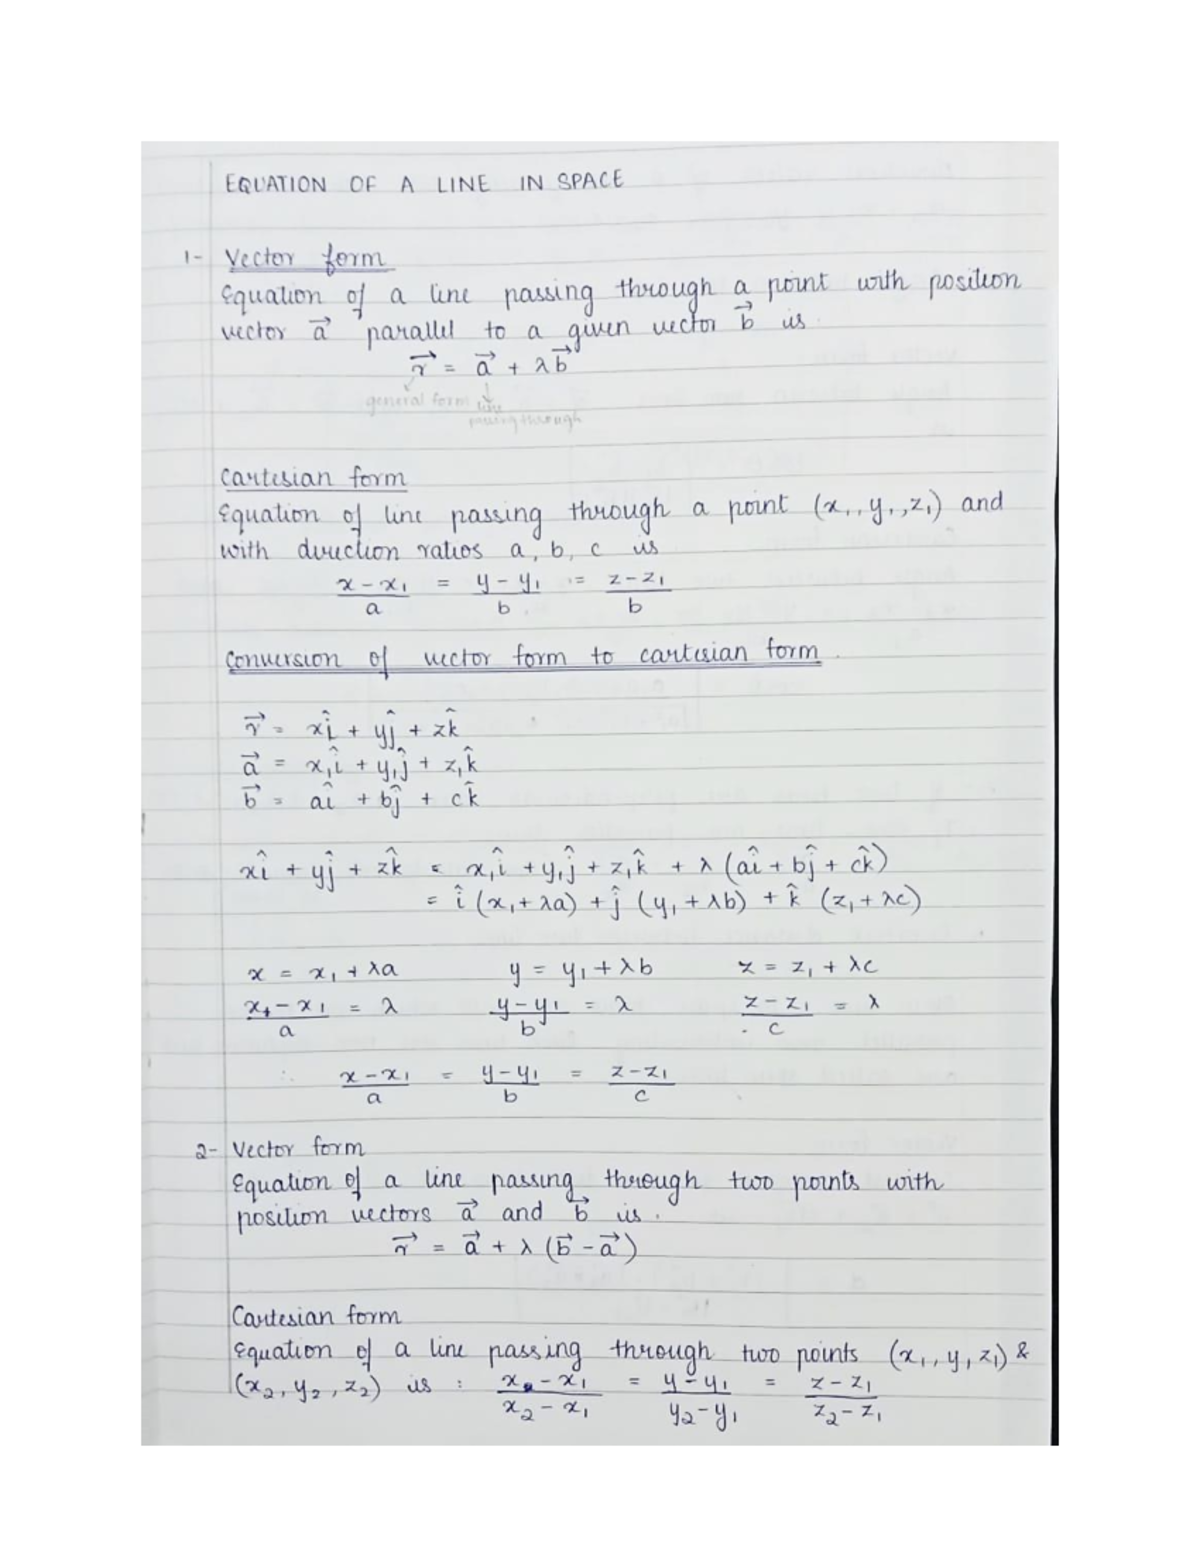 EQUATION OF A LINE IN SPACE
1- Vector form
Equation of a line passing through a point with position
vector a⃗ parallel to a given vector b⃗ is
r⃗ = a⃗ + λb⃗
general form line
passing through
Cartesian form
Equation of line passing through a point (x₁, y₁, z₁) and
with direction ratios a, b, c is
x - x₁ = y - y₁ = z - z₁
a b b
Conversion of vector form to cartesian form
r⃗ = xî + yĵ + zk̂
a⃗ = x₁î + y₁ĵ + z₁k̂
b⃗ = aî + bĵ + ck̂
xî + yĵ + zk̂ = x₁î + y₁ĵ + z₁k̂ + λ (aî + bĵ + ck̂)
= î (x₁ + λa) + ĵ (y₁ + λb) + k̂ (z₁ + λc)
x = x₁ + λa y = y₁ + λb z = z₁ + λc
x - x₁ = λ y - y₁ = λ z - z₁ = λ
a b c
∴ x - x₁ = y - y₁ = z - z₁
a b c
2- Vector form
Equation of a line passing through two points with
position vectors a⃗ and b⃗ is.
r⃗ = a⃗ + λ (b⃗ - a⃗)
Cartesian form
Equation of a line passing through two points (x₁, y₁ z₁) &
(x₂, y₂, z₂) is : x - x₁ = y - y₁ = z - z₁
x₂ - x₁ y₂ - y₁ z₂ - z₁